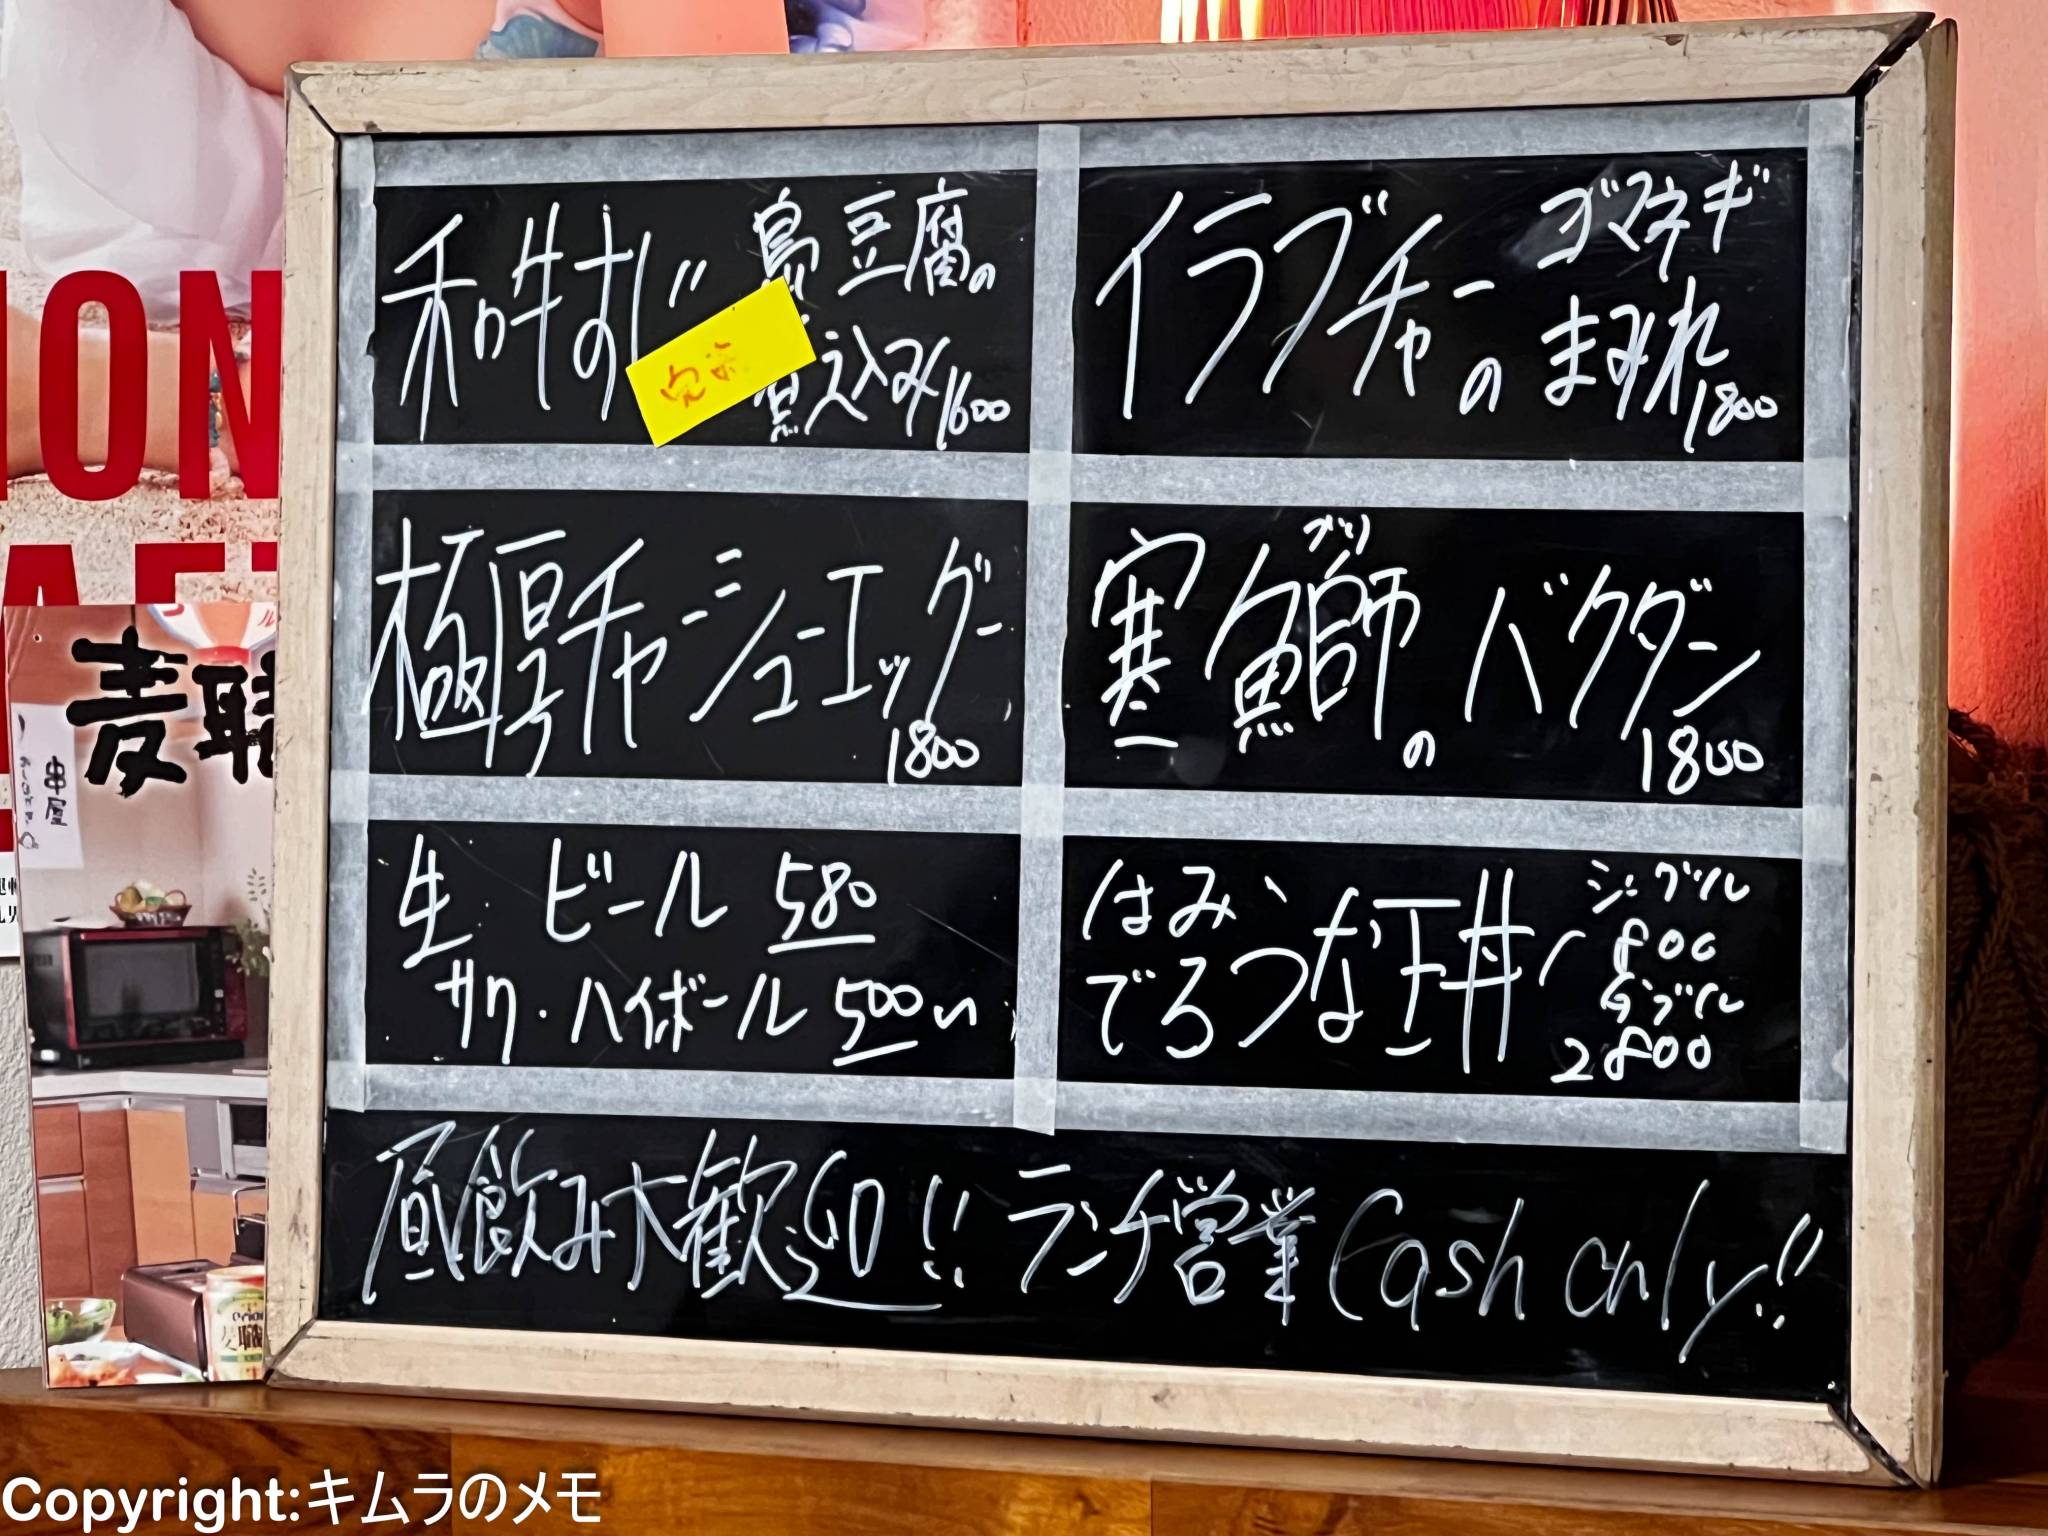 和牛すじ 島豆腐の
煮込み 1600
完売
イラブチャーの ゴマネギ
まみれ 1800
極厚チャーシューエッグ
1800
ブリ
寒鰤のバクダン
1800
生 ビール 580
サワ・ハイボール 500
はみ
でるうな玉丼
シングル
1800
ダブル
2800
昼飲み大歓迎!! ランチ営業 Cash only!!
ION
麦職
串屋
麦職
Copyright:キムラのメモ